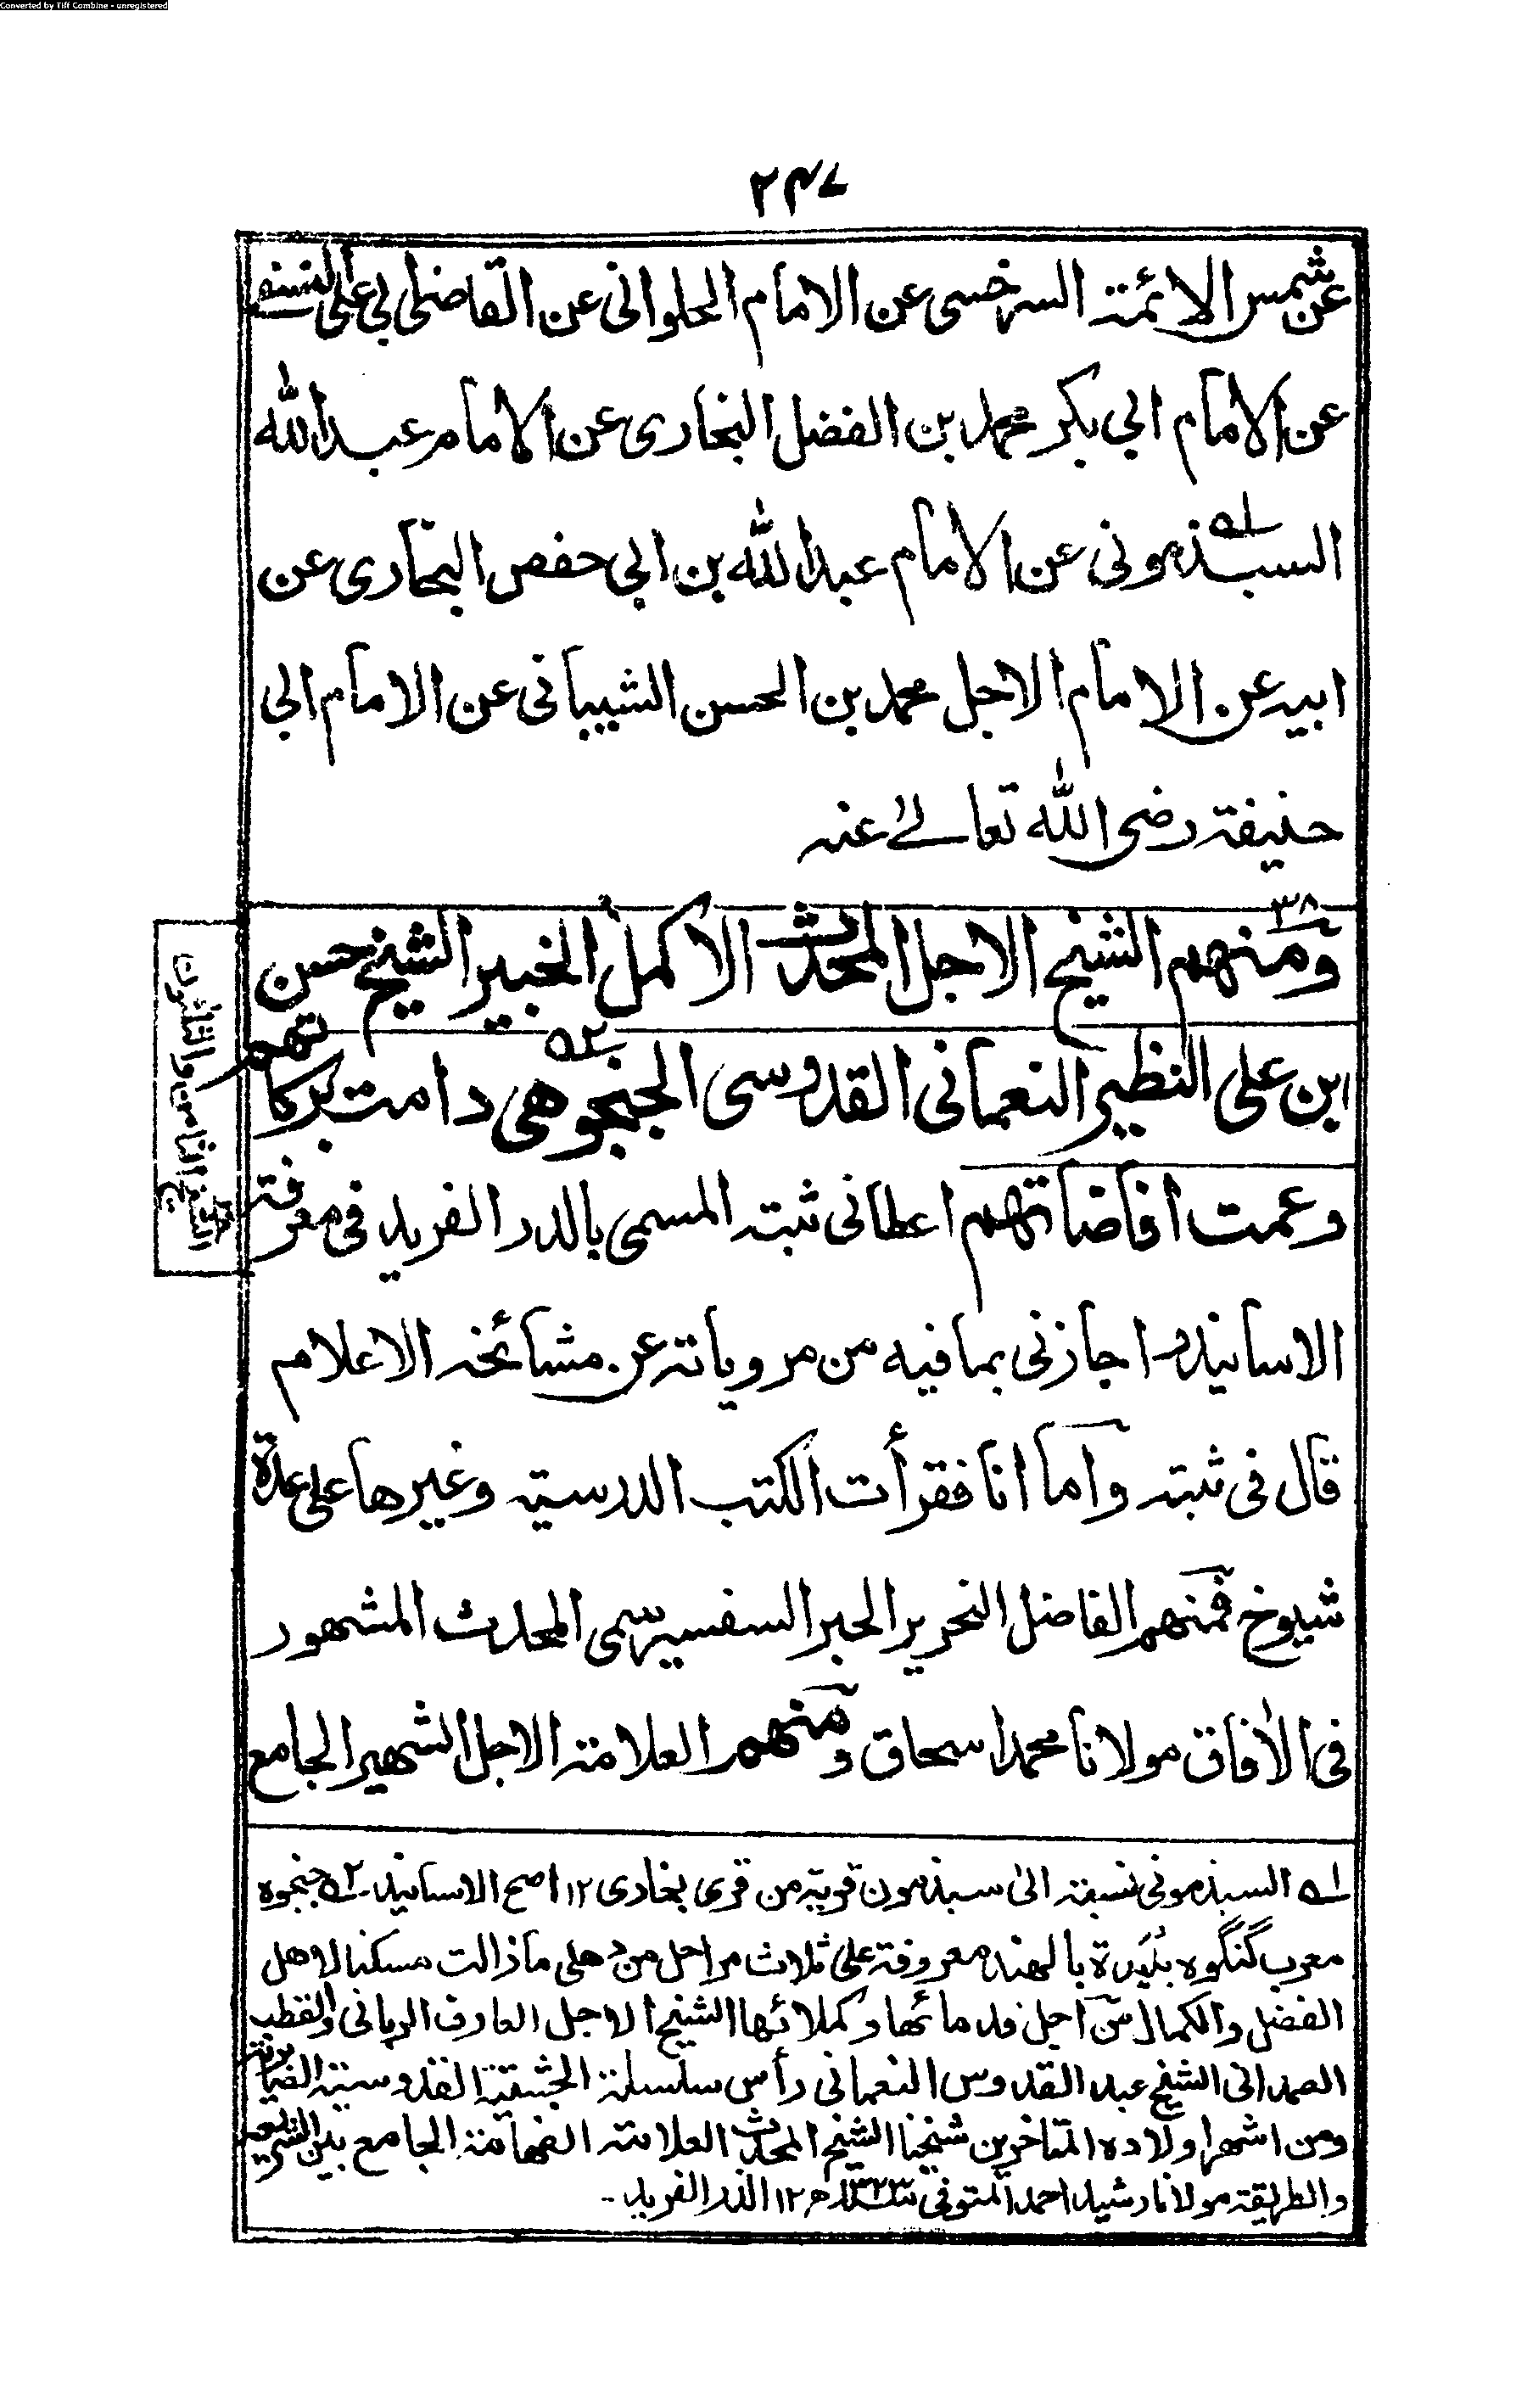 Converted by Tiff Combine - unregistered
٢٤٧
عن شمس الائمة السرخسی عن الامام الحلوانی عن القاضی ابی علی النسفی
عن الامام ابی بکر محمد بن الفضل البخاری عن الامام عبد الله
السبذمونی ١ عن الامام عبد الله بن ابی حفص البخاری عن
ابیه عن الامام الاجل محمد بن الحسن الشیبانی عن الامام ابی
حنیفة رضی الله تعالیٰ عنه
٣٨
ومنهم الشیخ الاجل المحدث الاکمل الخبیر الشیخ حسن
ابن علی النظیر النعمانی القدوسی الجنجوهی ٢ دامت برکاتهم
الشیخ الثامن والثلثون
وعمت افاضاتهم اعطانی ثبته المسمی بالدر الفرید فی معرفة
الاسانید واجازنی بما فیه من مرویاته عن مشائخه الاعلام
قال فی ثبته واما انا فقرأت الکتب الدرسیة وغیرها علی عدة
شیوخ فمنهم الفاضل النحریر الحبر السفسیر سمی المحدث المشهور
فی الاٰفاق مولانا محمد اسحاق ومنهم العلامة الاجل الشهیر الجامع
١ السبذمونی نسبة الیٰ سبذمون قریة من قری بخاری ١٢ اصح الاسانید ٢ جنجوه
معرب گنگوه بُلَیدة بالهند معروفة علی ثلاث مراحل من دهلی ما زالت مسکنا لاهل
الفضل والکمال من اجل قدمائها وکملائها الشیخ الاجل العارف الربانی والقطب
الصمدانی الشیخ عبد القدوس النعمانی رأس سلسلة الچشتیة القدوسیة الصابریة
ومن اشهر اولاده المتاخرین شیخنا الشیخ المحدث العلامة الفهامة الجامع بین الشریعة
والطریقة مولانا رشید احمد المتوفی ١٣٢٣ھ ١٢ الدر الفرید